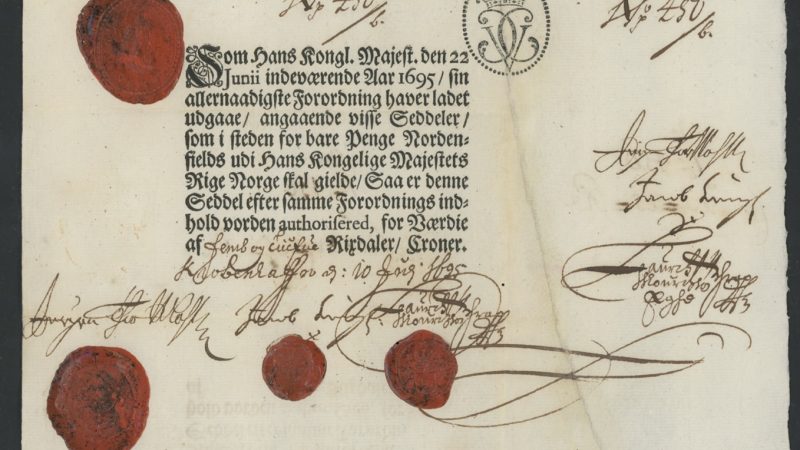 No 450
No 450
Som Hans Kongl. Majest. den 22
Junii indeværende Aar 1695/ sin
allernaadigste Forordning haver ladet
udgaae/ angaaende visse Seddeler/
som i steden for bare Penge Norden-
fields udi Hans Kongelige Majestets
Rige Norge skal gielde/ Saa er denne
Seddel efter samme Forordnings ind-
hold vorden authorisered, for Værdie
af og Rixdaler/ Croner.
10 1695
Jacob
Jacob
Mouritz
Mouritz